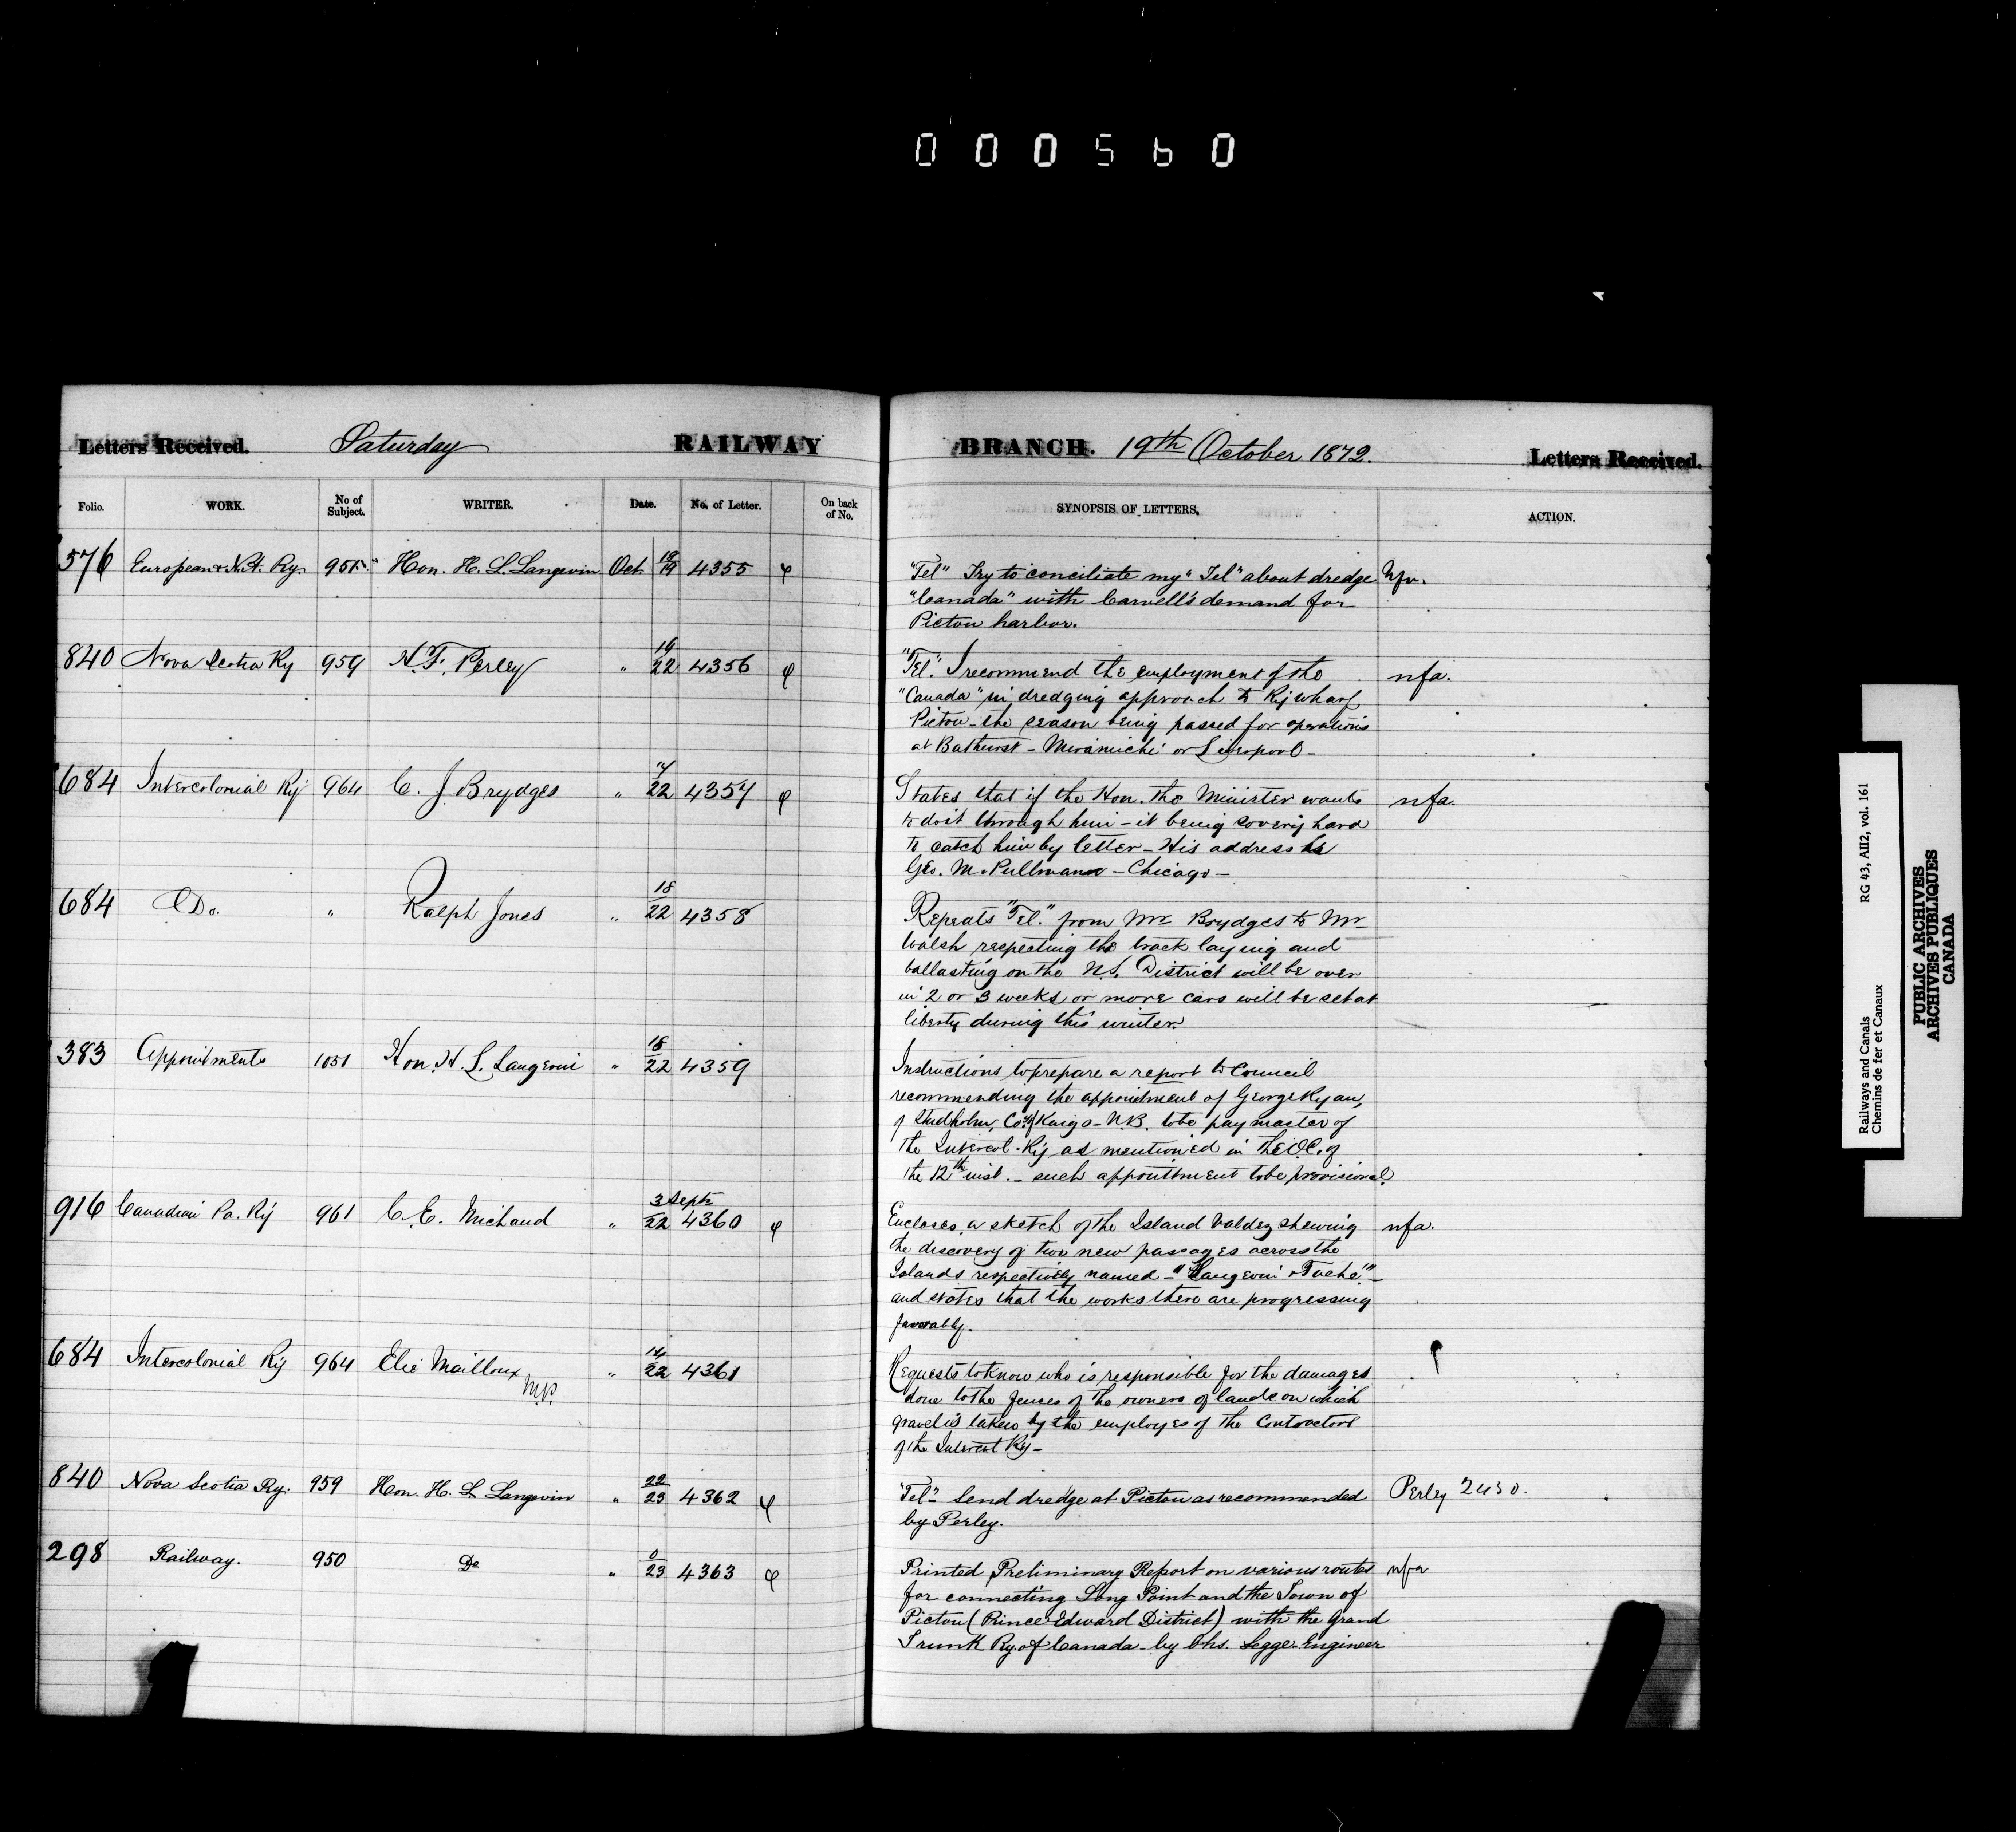 000560
Letters Received. Saturday RAILWAY BRANCH. 19th October 1872. Letters Received.
Folio. WORK. No of Subject. WRITER. Date. No. of Letter. On back of No. SYNOPSIS OF LETTERS. ACTION.
576 European & N.A. Ry. 955 Hon. H. L. Langevin Oct 18/19 4355 "Tel" Try to conciliate my "Tel" about dredge nfa.
"Canada" with Carvell's demand for
Pictou harbor.
840 Nova Scotia Ry 959 H. F. Perley " 19/22 4356 "Tel." I recommend the employment of the nfa.
"Canada" in dredging approach to Ry wharf
Pictou - the season being passed for operations
at Bathurst - Miramichi or Liverpool -
684 Intercolonial Ry 964 C. J. Brydges " 17/22 4357 States that if the Hon. the Minister wants nfa.
to do it through him - it being so very hard
to catch him by letter - His address is
Geo. M. Pullman - Chicago -
684 Do. " Ralph Jones " 18/22 4358 Repeats "Tel." from Mr Brydges to Mr
Walsh respecting the track laying and
ballasting on the N.S. District will be over
in 2 or 3 weeks or more cars will be set at
liberty during this winter.
383 Appointments 1051 Hon. H. L. Langevin " 18/22 4359 Instructions to prepare a report to Council
recommending the appointment of George Ryan,
of Studholm, Co. of Kings - N.B. to be paymaster of
the Intercol. Ry as mentioned in the O.C. of
the 12th inst. - such appointment to be provisional.
916 Canadian Pa. Ry 961 C. E. Michaud " 3 Septr/22 4360 Encloses a sketch of the Island Valdez shewing nfa.
the discovery of two new passages across the
Islands respectively named - "Langevin & Taché" -
and states that the works there are progressing
favorably.
684 Intercolonial Ry 964 Elie Mailloux " 14/22 4361 Requests to know who is responsible for the damages
M.P. done to the fences of the owners of lands on which
gravel is taken by the employes of the Contractors
of the Intercol Ry -
840 Nova Scotia Ry. 959 Hon. H. L. Langevin " 22/23 4362 "Tel" - Send dredge at Pictou as recommended Perley 2430.
by Perley.
298 Railway. 950 Do " 0/23 4363 Printed Preliminary Report on various routes nfa
for connecting Long Point and the Town of
Picton (Prince Edward District) with the Grand
Trunk Ry. of Canada - by Chs. Legge Engineer
Railways and Canals RG 43, AII2, vol. 161
Chemins de fer et Canaux
PUBLIC ARCHIVES
ARCHIVES PUBLIQUES
CANADA